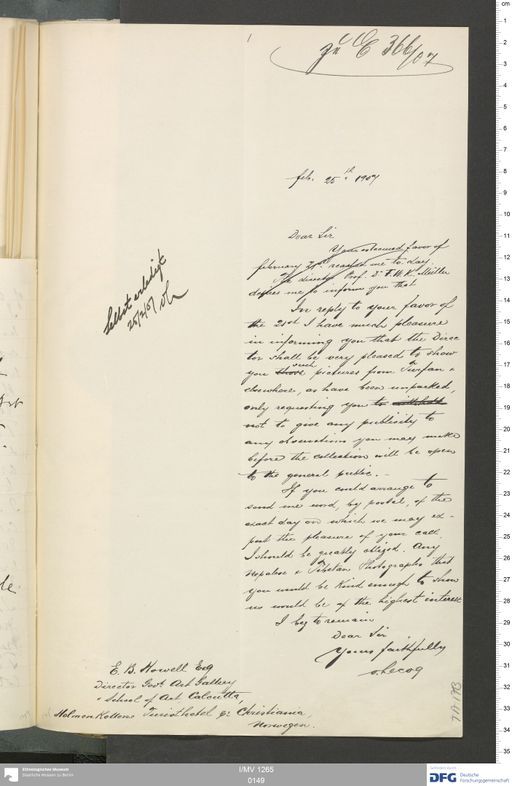 zu E 366/07
feb. 25th 1907
Dear Sir
Your esteemed favor of
february 21st reached me to day.
The director Prof. Dr F. W. K. Müller
desires me to inform you that
In reply to your favor of
the 21st I have much pleasure
in informing you that the Direc
tor shall be very pleased to show
you those such pictures from Turfan &
elsewhere, as have been unpacked,
only requesting you to withhold
not to give any publicity to
any observations you may make
before the collection will be open
to the general public. –
If you could arrange to
send me word, by postal, of the
exact day on which we may ex-
pect the pleasure of your call,
I should be greatly obliged. Any
Nepalese & Tibetan Photographs that
you would be kind enough to show
us would be of the highest interest
I beg to remain
Dear Sir
Yours faithfully
v. Lecoq
Selbst erledigt
25/2/07
E. B. Howell Esq
Director Govt Art Gallery
& School of Art Calcutta,
Holmenkollens Turisthotel pr Christiania,
Norwegen.
Ethnologisches Museum
Staatliche Museen zu Berlin
I/MV 1265
0149
DFG Deutsche
Forschungsgemeinschaft